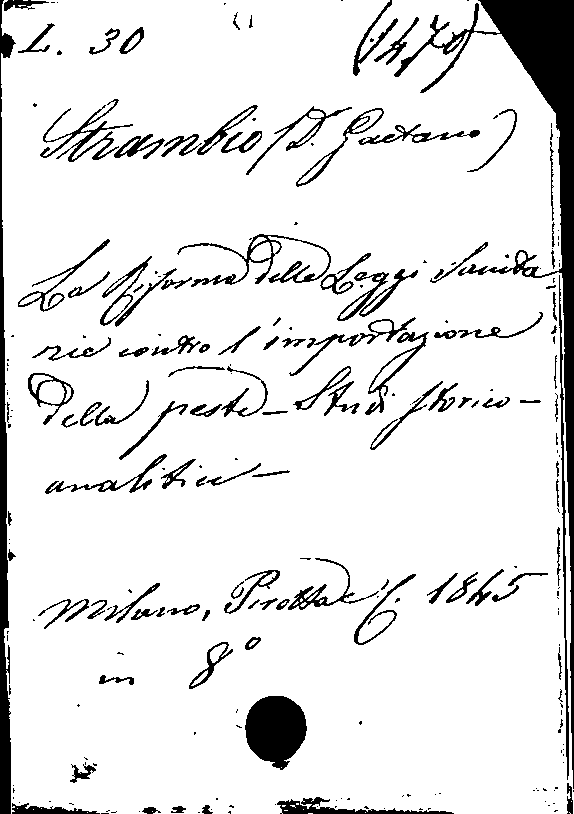 L. 30 (14,70)
Strambio (Dr. Gaetano)
La Riforma delle Leggi Sanita-
rie contro l'importazione
della peste - Studi storico-
analitici -
Milano, Pirotta e C. 1845
in 8°